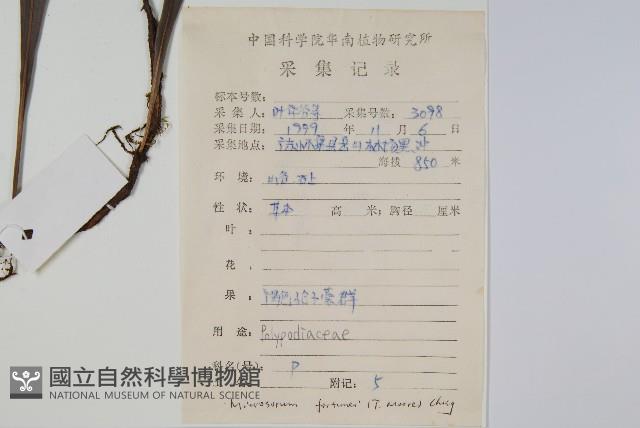 中国科学院华南植物研究所
采集记录
标本号数:
采集人: 叶华谷等 采集号数: 3098
采集日期: 1999 年 11 月 6 日
采集地点: 山林场黑冲
海拔 850 米
环境: 山谷 石上
性状: 草本 高 米; 胸径 厘米
叶
花
果: 孢子囊群
用途: Polypodiaceae
科名(号): P
附记: 5
Microsorum fortunei (T. Moore) Ching
國立自然科學博物館
NATIONAL MUSEUM OF NATURAL SCIENCE